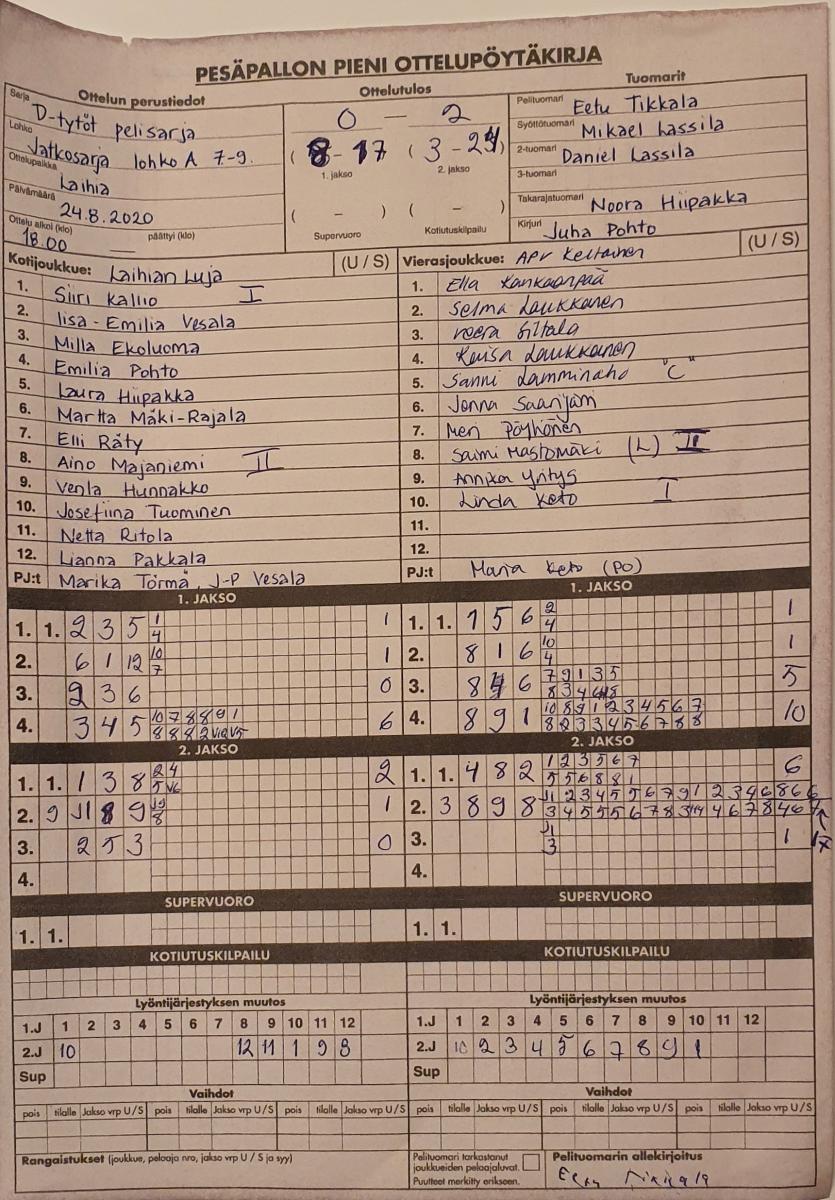 PESÄPALLON PIENI OTTELUPÖYTÄKIRJA
Ottelun perustiedot
Sarja D-tytöt pelisarja
Lohko Jatkosarja lohko A 7-9.
Ottelupaikka Laihia
Päivämäärä 24.8.2020
Ottelu alkoi (klo) 18.00 päättyi (klo)
Ottelutulos
0 — 2
(8 - 17) (3 - 24)
1. jakso 2. jakso
( - ) ( - )
Supervuoro Kotiutuskilpailu
Tuomarit
Pelituomari Eetu Tikkala
Syöttötuomari Mikael Lassila
2-tuomari Daniel Lassila
3-tuomari
Takarajatuomari Noora Hiipakka
Kirjuri Juha Pohto
Kotijoukkue: Laihian Luja (U / S)
1. Siiri Kallio I
2. Iisa-Emilia Vesala
3. Milla Ekoluoma
4. Emilia Pohto
5. Laura Hiipakka
6. Martta Mäki-Rajala
7. Elli Räty
8. Aino Majaniemi II
9. Venla Hunnakko
10. Josefiina Tuominen
11. Netta Ritola
12. Lianna Pakkala
PJ:t Marika Törmä, J-P Vesala
Vierasjoukkue: APV Keltainen (U / S)
1. Ella Kankaanpää
2. Selma Laukkanen
3. Veera Siltala
4. Kaisa Laukkanen
5. Sanni Lamminaho "C"
6. Jonna Saarijärvi
7. Meri Pöyhönen
8. Saimi Mastomäki (L) II
9. Annika Yritys
10. Linda Keto I
11.
12.
PJ:t Marja Keto (PO)
1. JAKSO
1. 1. 2 3 5 1 1
4
2. 6 1 12 10 1
7
3. 2 3 6 0
4. 3 4 5 10 7 8 8 9 1 6
2. JAKSO
1. 1. 1 3 8 2 4 2
5 V6
2. 9 J1 8 9 1
8
3. 2 5 3 0
4.
SUPERVUORO
1. 1.
KOTIUTUSKILPAILU
1. JAKSO
1. 1. 1 5 6 2 1
4
2. 8 1 6 10 1
4
3. 8 4 6 7 9 1 3 5 5
4. 8 9 1 10 8 9 1 2 3 4 5 6 7 10
8 2 3 3 4 5 6 7 8 8
2. JAKSO
1. 1. 4 8 2 1 2 3 5 6 7 6
5 5 6 8 8 1
2. 3 8 9 8 J1 2 3 4 5 5 6 7 9 1 2 3 4 6 8 6 6
17
3. J1 1
3
4.
SUPERVUORO
1. 1.
KOTIUTUSKILPAILU
Lyöntijärjestyksen muutos
1.J 1 2 3 4 5 6 7 8 9 10 11 12
2.J 10 12 11 1 9 8
Sup
Lyöntijärjestyksen muutos
1.J 1 2 3 4 5 6 7 8 9 10 11 12
2.J 10 2 3 4 5 6 7 8 9 1
Sup
Vaihdot
pois tilalle Jakso vrp U / S pois tilalle Jakso vrp U / S pois tilalle Jakso vrp U / S
Vaihdot
pois tilalle Jakso vrp U / S pois tilalle Jakso vrp U / S pois tilalle Jakso vrp U / S
Rangaistukset (joukkue, pelaaja nro, jakso vrp U / S ja syy)
Pelituomari tarkastanut
joukkueiden pelaajaluvat.
Puutteet merkitty erikseen.
Pelituomarin allekirjoitus
Eetu Tikkala